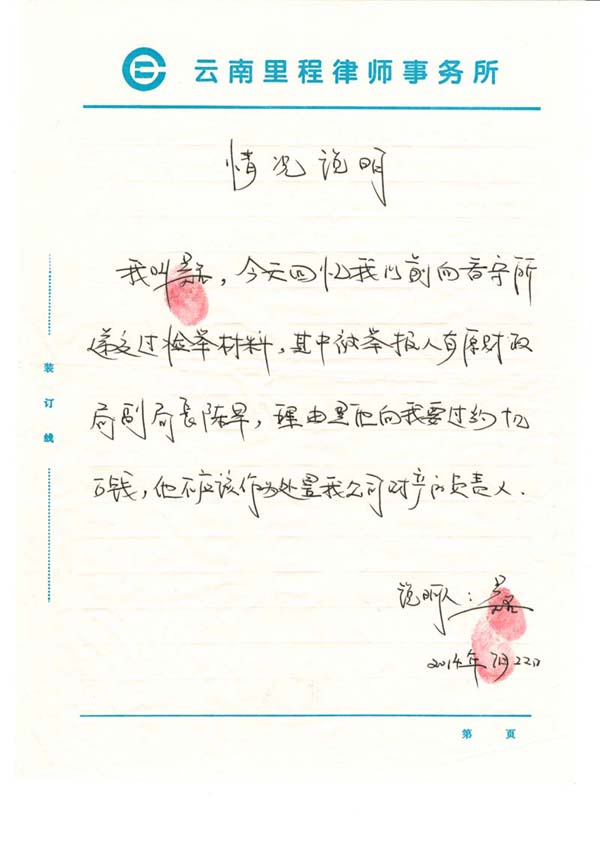 云南里程律师事务所
情况说明
我叫，今天回忆我以前向看守所
递交过检举材料，其中被举报人有原财政
局副局长陈旱，理由是他向我要过约
万钱，他不应该作为处置我公司财产的负责人．
装
订
线
说明人：
2014年7月22日
第 页